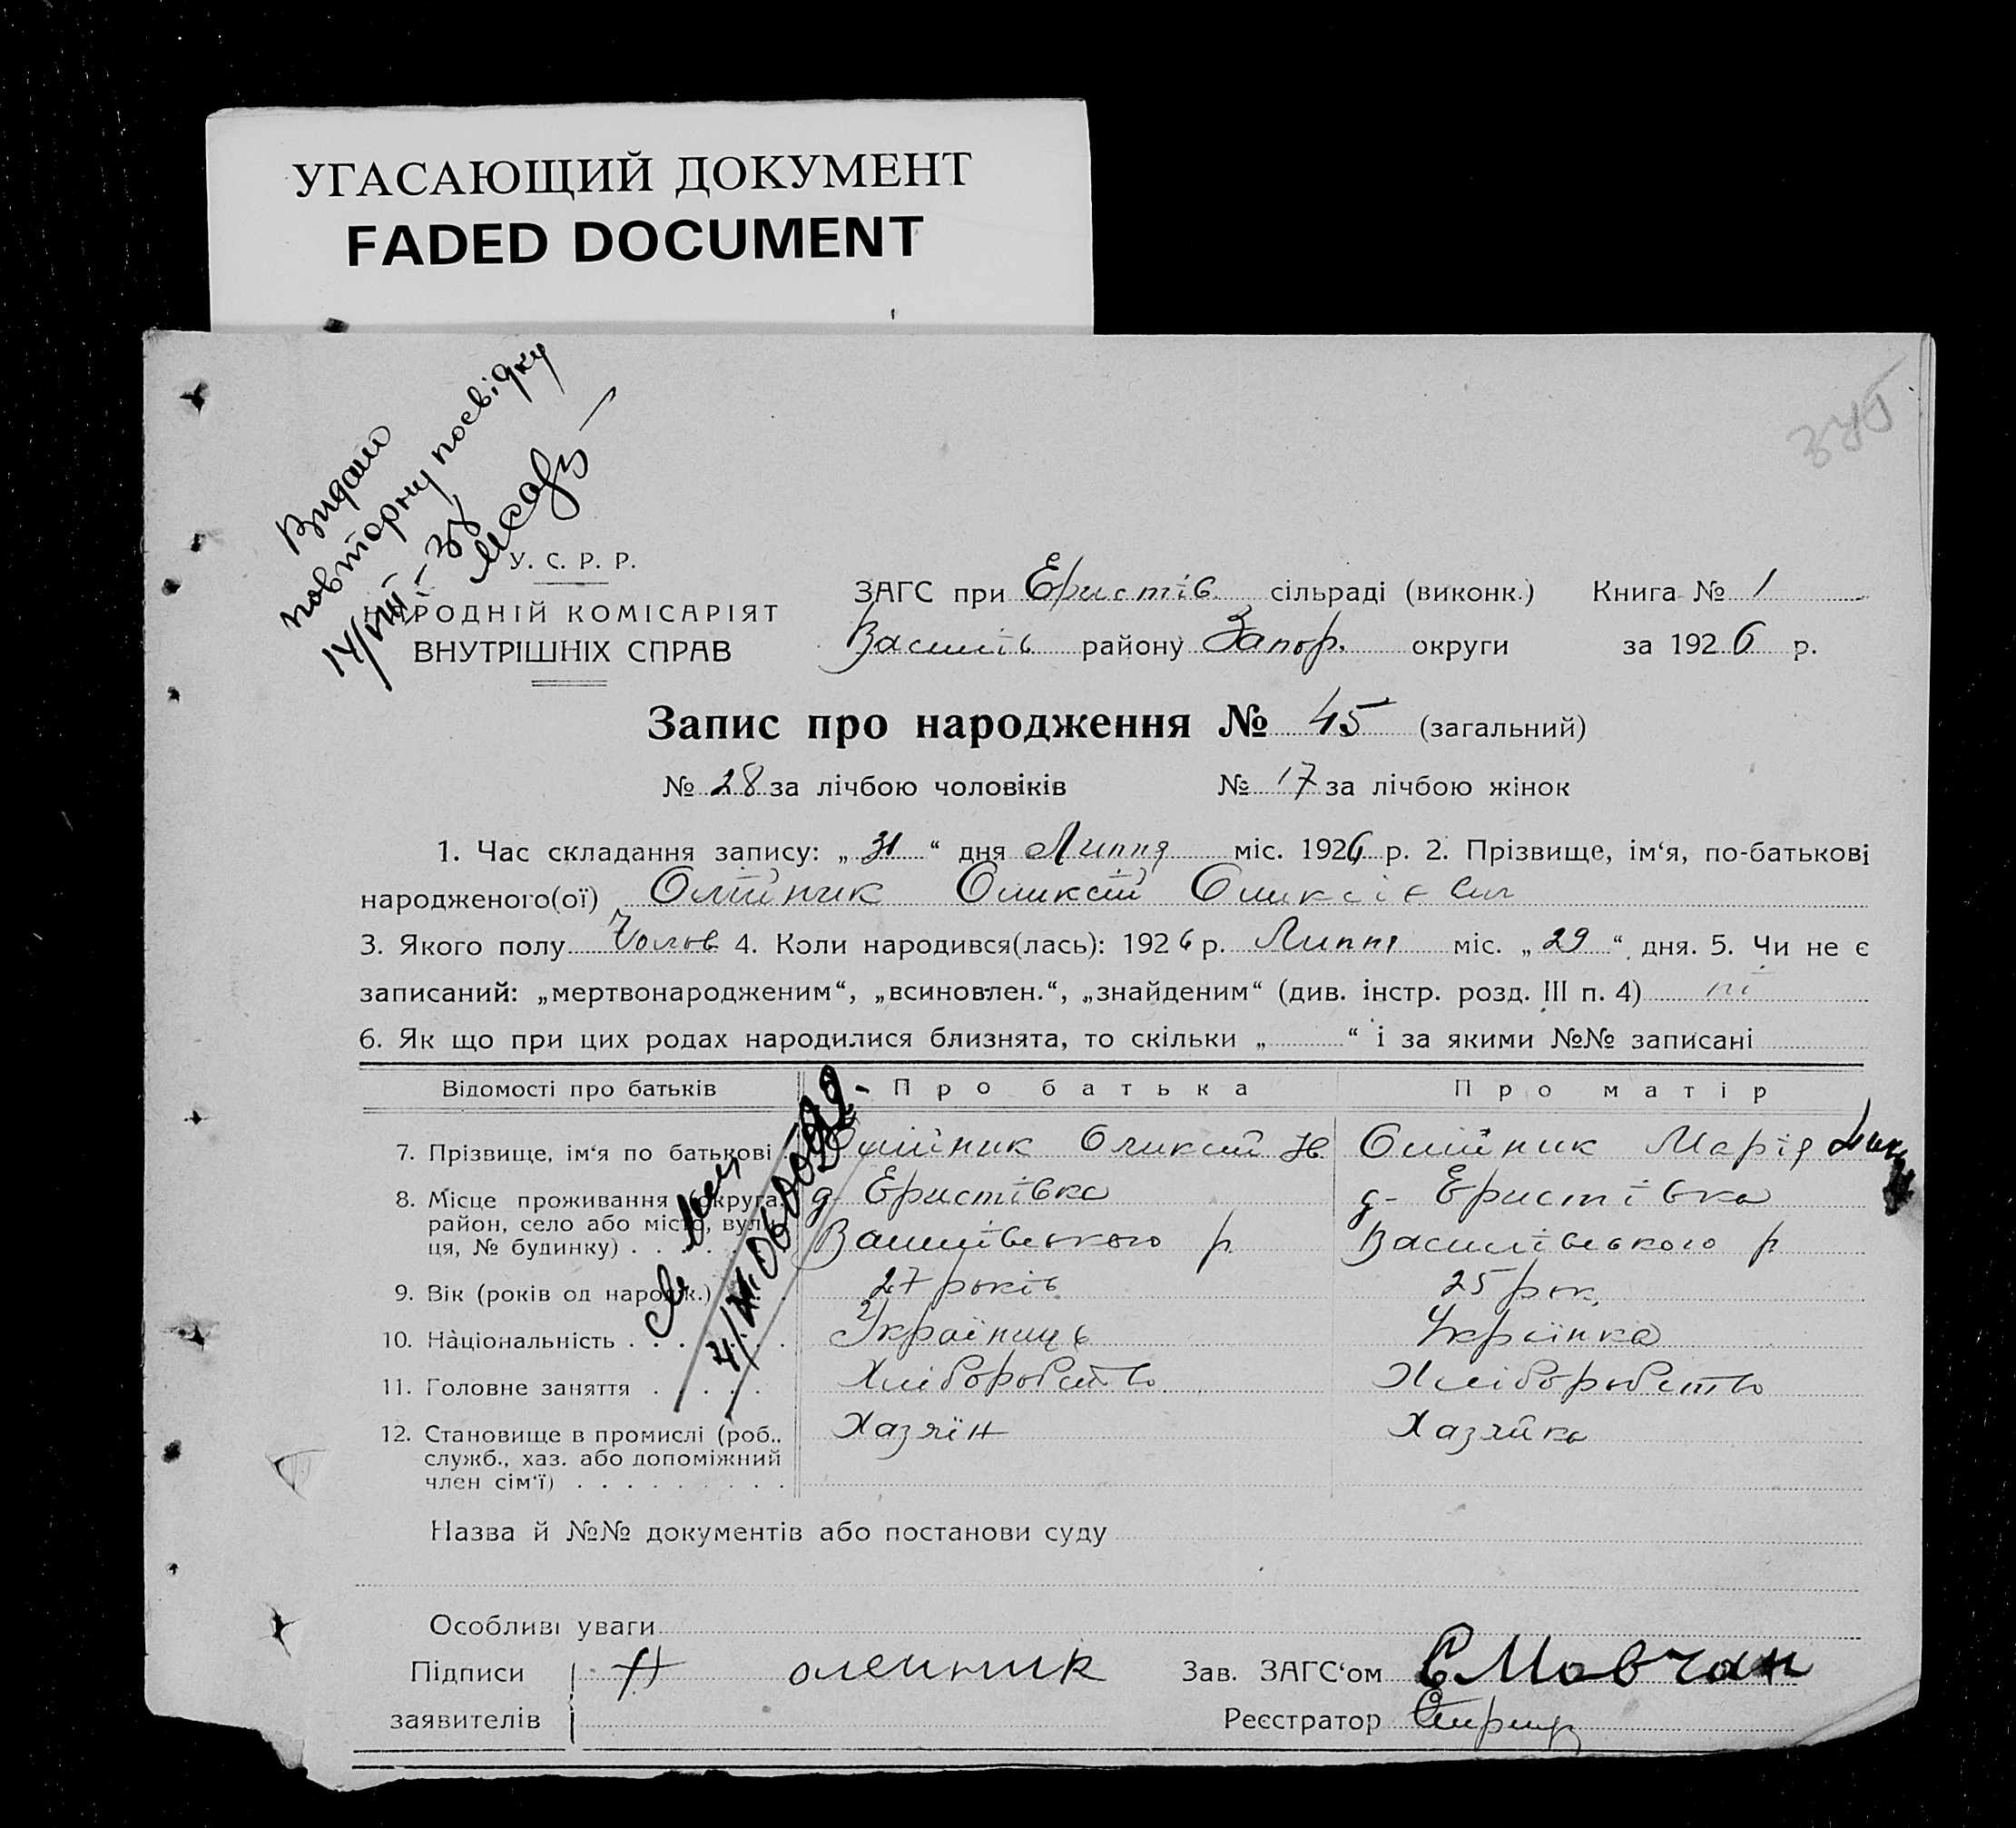 УГАСАЮЩИЙ ДОКУМЕНТ
FADED DOCUMENT
Видано
повторну посвідку
14/VIII-
У. С. Р. Р.
НАРОДНІЙ КОМІСАРІЯТ
ВНУТРІШНІХ СПРАВ
ЗАГС при Еристів. сільраді (виконк.) Книга № 1
Василів району Запор. округи за 1926 р.
Запис про народження № 45 (загальний)
№ 28 за лічбою чоловіків № 17 за лічбою жінок
1. Час складання запису: „ 31 “ дня Липня міс. 1926 р. 2. Прізвище, ім‘я, по-батькові
народженого(ої) Олійник Оликсій Оликсієвич
3. Якого полу Чолов 4. Коли народився(лась): 1926 р. Липня міс. „ 29 “ дня. 5. Чи не є
записаний: „мертвонародженим“, „всиновлен.“, „знайденим“ (див. інстр. розд. III п. 4) ні
6. Як що при цих родах народилися близнята, то скільки „ “ і за якими №№ записані
Відомості про батьків Про батька Про матір
7. Прізвище, ім‘я по батькові Олійник Оликсій Н. Олійник Марія
8. Місце проживання (округа, д- Еристівка д- Еристівка
район, село або місто, вули-
ця, № будинку) . . . Василівського р Василівського р
9. Вік (років од народж.) 27 років 25 рок.
10. Національність . . . Українець Українка
11. Головне заняття . . . . . Хліборобство Хліборобство
12. Становище в промислі (роб., Хазяїн Хазяйка
служб., хаз. або допоміжний
член сім‘ї) . . . . . . . . .
Назва й №№ документів або постанови суду
Особливі уваги
Підписи Н олейник Зав. ЗАГС‘ом Є Мовчан
заявителів Реєстратор